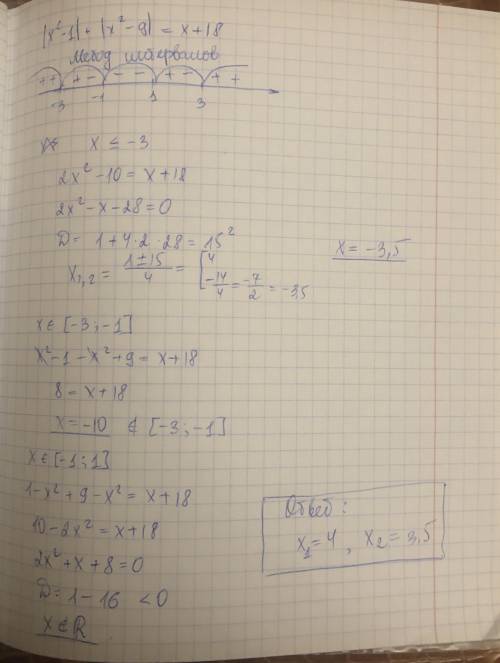 |x²-1| + |x²-9| = x+18
Метод интервалов
++ + - - - + - + +
-3 -1 1 3
x ≤ -3
2x²-10 = x+18
2x²-x-28=0
D = 1+4·2·28 = 15²
x₁,₂ = (1±15)/4 = [4
-14/4 = -7/2 = -3,5
x = -3,5
x∈[-3;-1]
x²-1-x²+9 = x+18
8 = x+18
x=-10 ∉ [-3;-1]
x∈[-1;1]
1-x²+9-x² = x+18
10-2x² = x+18
2x²+x+8=0
D=1-16 <0
x∉R
Ответ:
x₁=4, x₂=3,5